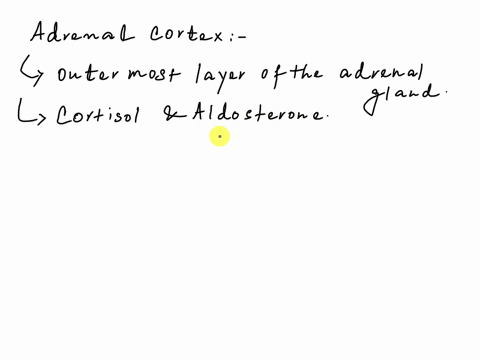 Adrenal cortex:-
↳ outer most layer of the adrenal gland.
↳ Cortisol & Aldosterone.